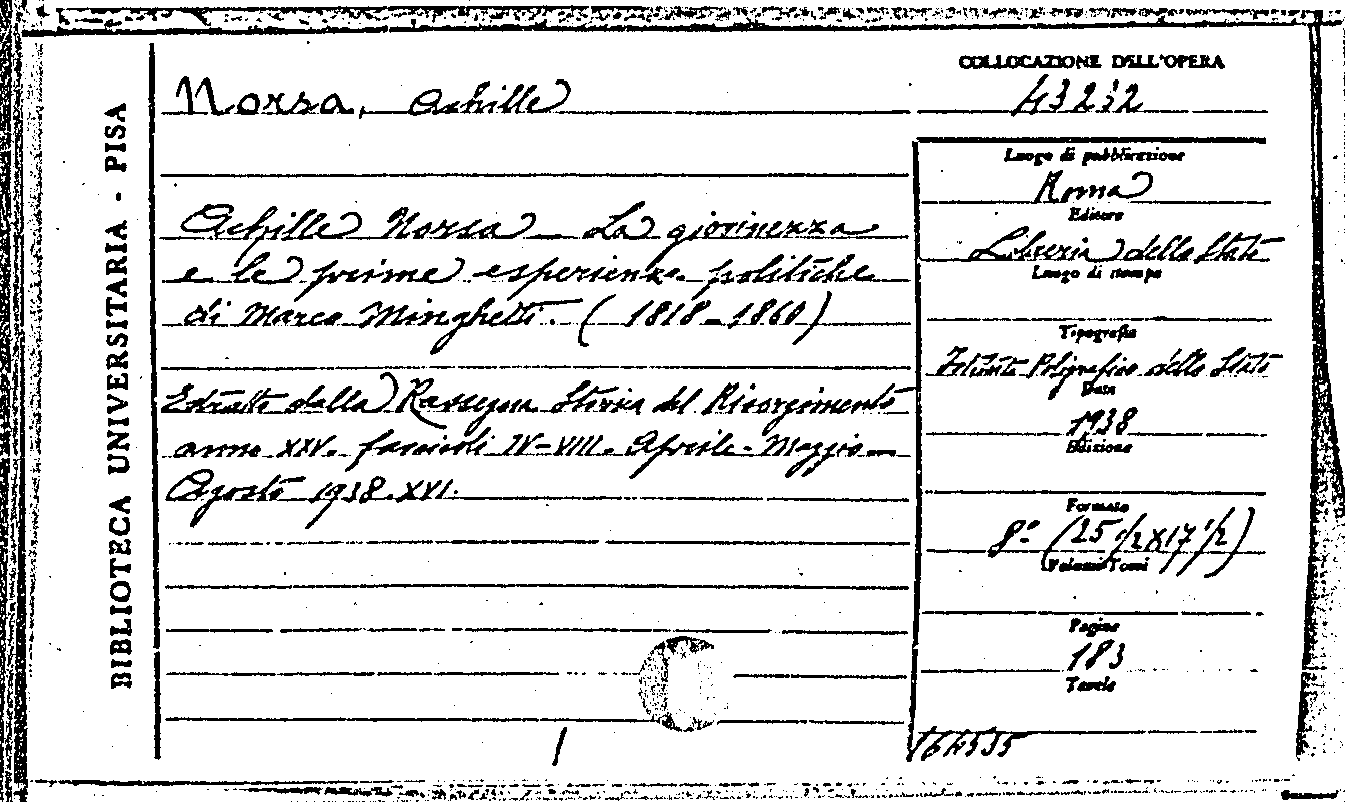 BIBLIOTECA UNIVERSITARIA - PISA
Norsa, Achille
Achille Norsa - La giovinezza
e le prime esperienze politiche
di Marco Minghetti. (1818-1860)
Estratto dalla Rassegna Storica del Risorgimento
anno XXV. fascicoli IV-VIII. Aprile - Maggio -
Agosto 1938. XVI.
1
COLLOCAZIONE DELL'OPERA
43232
Luogo di pubblicazione
Roma
Editore
Libreria dello Stato
Luogo di stampa
Tipografia
Istituto Poligrafico dello Stato
Data
1938
Edizione
Formato
8° (25 1/2 X 17 1/2)
Volumi Tomi
Pagine
183
Tavole
164535